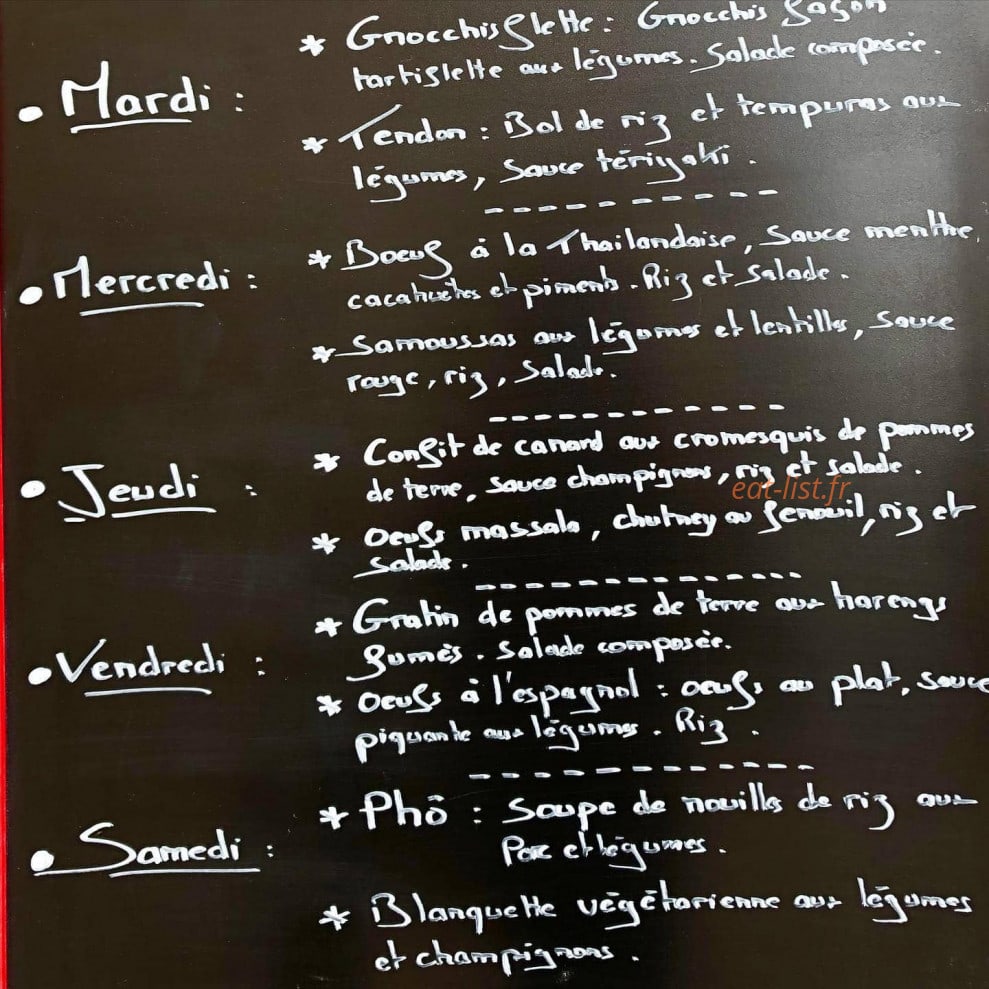 * Gnocchisflette : Gnocchis façon
• Mardi : tartiflette aux légumes. Salade composée.
* Tendon : Bol de riz et tempuras aux
légumes, Sauce tériyaki.
- - - - - - - - - - -
* Boeuf à la Thailandaise, Sauce menthe,
• Mercredi : cacahuètes et piments. Riz et salade.
* Samoussas aux légumes et lentilles, sauce
rouge, riz, salade.
- - - - - - - - - - -
* Confit de canard aux cromesquis de pommes
• Jeudi : de terre, sauce champignons, riz et salade.
eat-list.fr
* Oeufs massala, chutney au fenouil, riz et
salade.
- - - - - - - - - - - -
* Gratin de pommes de terre aux harengs
• Vendredi : fumés. Salade composée.
* Oeufs à l'espagnol : oeufs au plat, sauce
piquante aux légumes. Riz.
- - - - - - - - - - - -
* Phô : Soupe de nouilles de riz aux
• Samedi : Porc et légumes.
* Blanquette végétarienne aux légumes
et champignons.